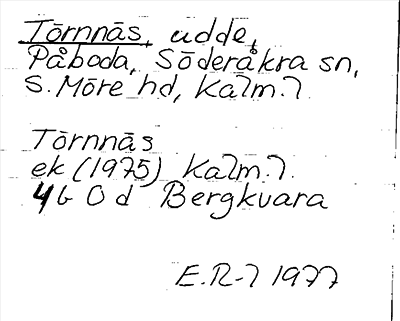 Törnnäs, udde,
Påboda, Söderåkra sn,
S. Möre hd, Kalm. l.
Törnnäs
ek (1975) Kalm. l.
4G 0 d Bergkvara
E.R-l 1977